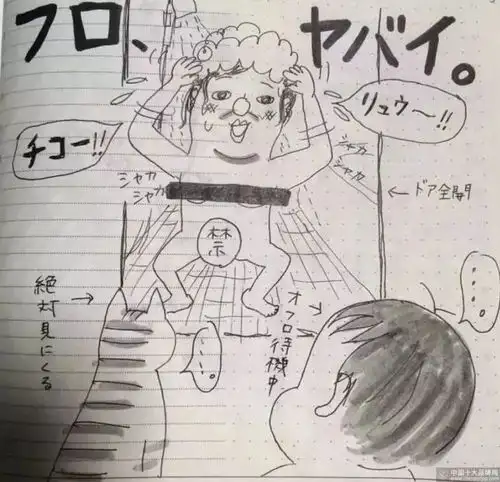 フロ、ヤバイ。
チコー!!
リュウ〜!!
シャカ
シャカ
シャカ
シャカ
←ドア全開
禁
絶対見にくる→
オフロ待機中→
····。
····。
中国十大品牌网